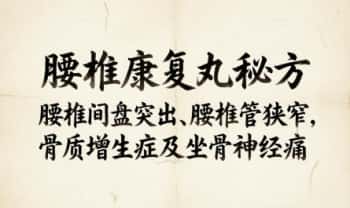 腰椎康复丸秘方
腰椎间盘突出、腰椎管狭窄,
骨质增生症及坐骨神经痛